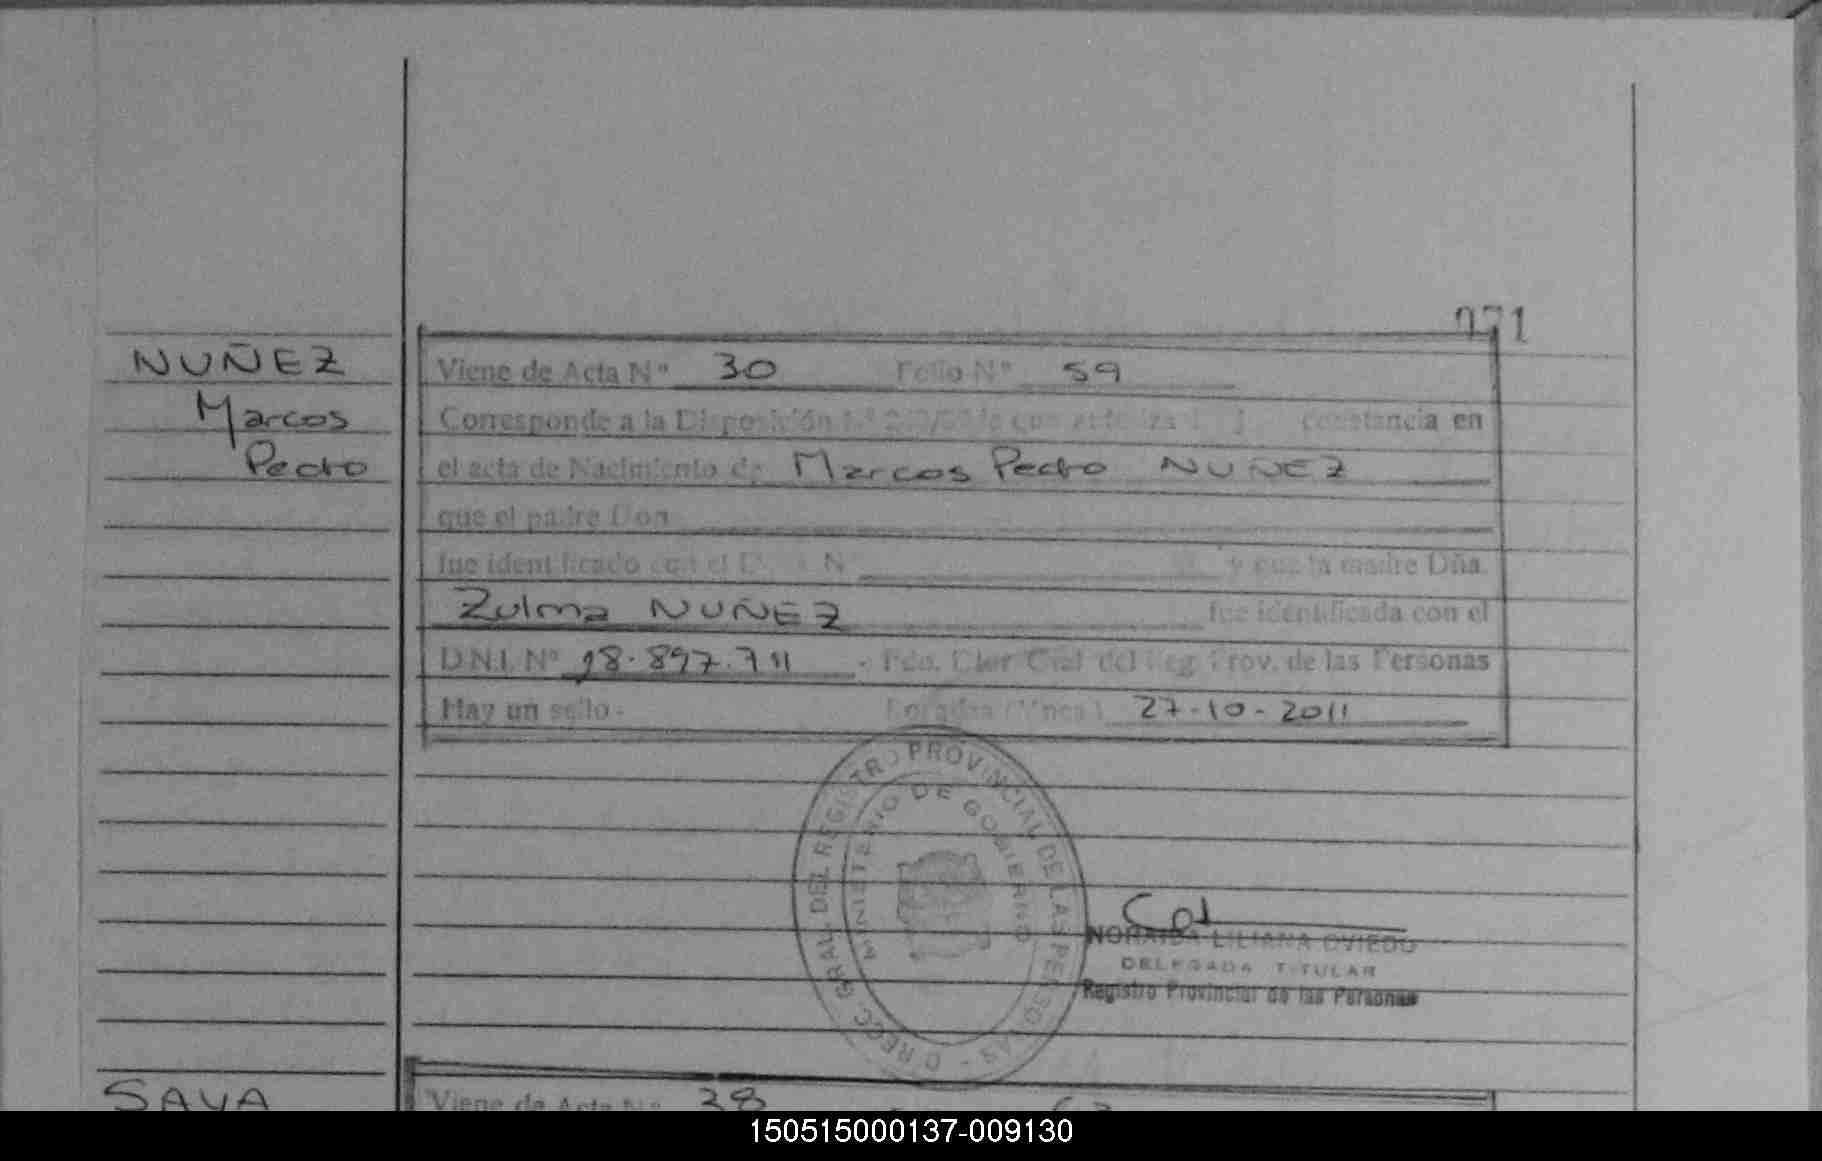 071
NUÑEZ
Marcos
Pedro
Viene de Acta Nº 30 Folio Nº 59
Corresponde a la Disposición que autoriza constancia en
el acta de Nacimiento de Marcos Pedro NUÑEZ
que el padre Don
fue identificado con el D.N.I. Nº y que la madre Dña.
Zulma NUÑEZ fue identificada con el
D.N.I. Nº 18.897.711 - Fdo. Gral del Reg. Prov. de las Personas
Hay un sello - 27-10-2011
DIRECC. GRAL. DEL REGISTRO PROVINCIAL DE LAS PERSONAS -
MINISTERIO DE GOBIERNO
NORAIDA LILIANA OVIEDO
DELEGADA TITULAR
Registro Provincial de las Personas
SAVA
Viene de Acta Nº 38
150515000137-009130